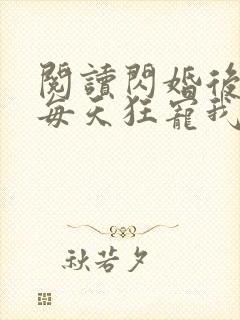 閱讀閃婚後
每天狂寵我
秋若夕